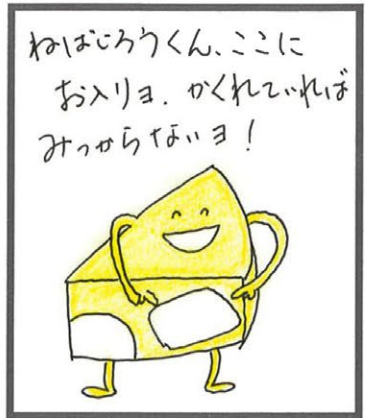 ねばじろうくん、ここに
お入りョ. かくれていれば
みつからないョ!